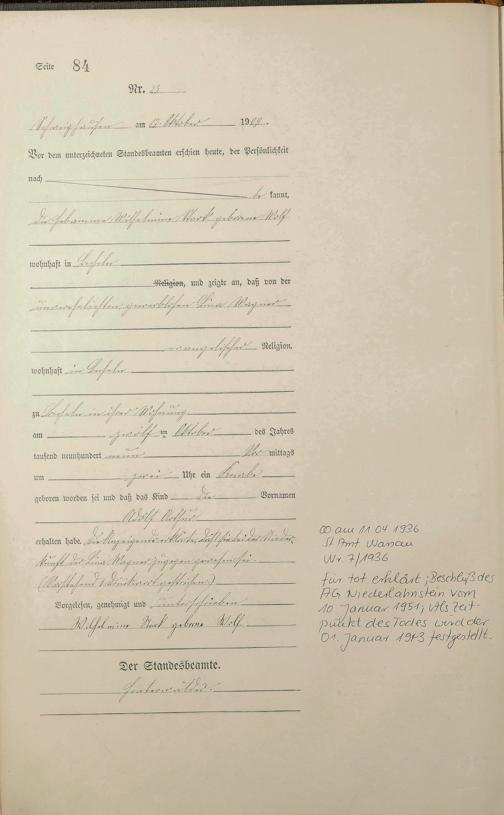 Seite 84
Nr. 23
Schweighausen am 13. Oktober 1909.
Vor dem unterzeichneten Standesbeamten erschien heute, der Persönlichkeit
nach
be kannt,
die Hebamme Wilhelmine Stark geborene Wolf
wohnhaft in Becheln
Religion, und zeigte an, daß von der
unverehelichten gewerblosen Lina Wagner
evangelischer Religion,
wohnhaft in Becheln
zu Becheln in ihrer Wohnung
am zwölften Oktober des Jahres
tausend neunhundert neun Vor mittags
um zwei Uhr ein Knabe
geboren worden sei und daß das Kind die Vornamen
Adolf Arthur
erhalten habe. Die Anzeigende erklärte, daß sie bei der Nieder-
kunft der Lina Wagner zugegen gewesen sei.
(Vorstehend Druckwort gestrichen)
Vorgelesen, genehmigt und unterschrieben
Wilhelmine Stark geborene Wolf
Der Standesbeamte.
∞ am 11.04 1936
St Amt
Nr. 7/1936
für tot erklärt; Beschluß des
AG Niederlahnstein vom
10 Januar 1951, Als Zeit-
punkt des Todes wird der
01. Januar festgestellt.